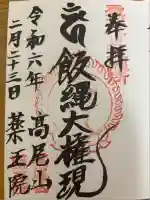 奉拝
飯縄大権現
高尾山
薬王院
令和六年
二月二十三日